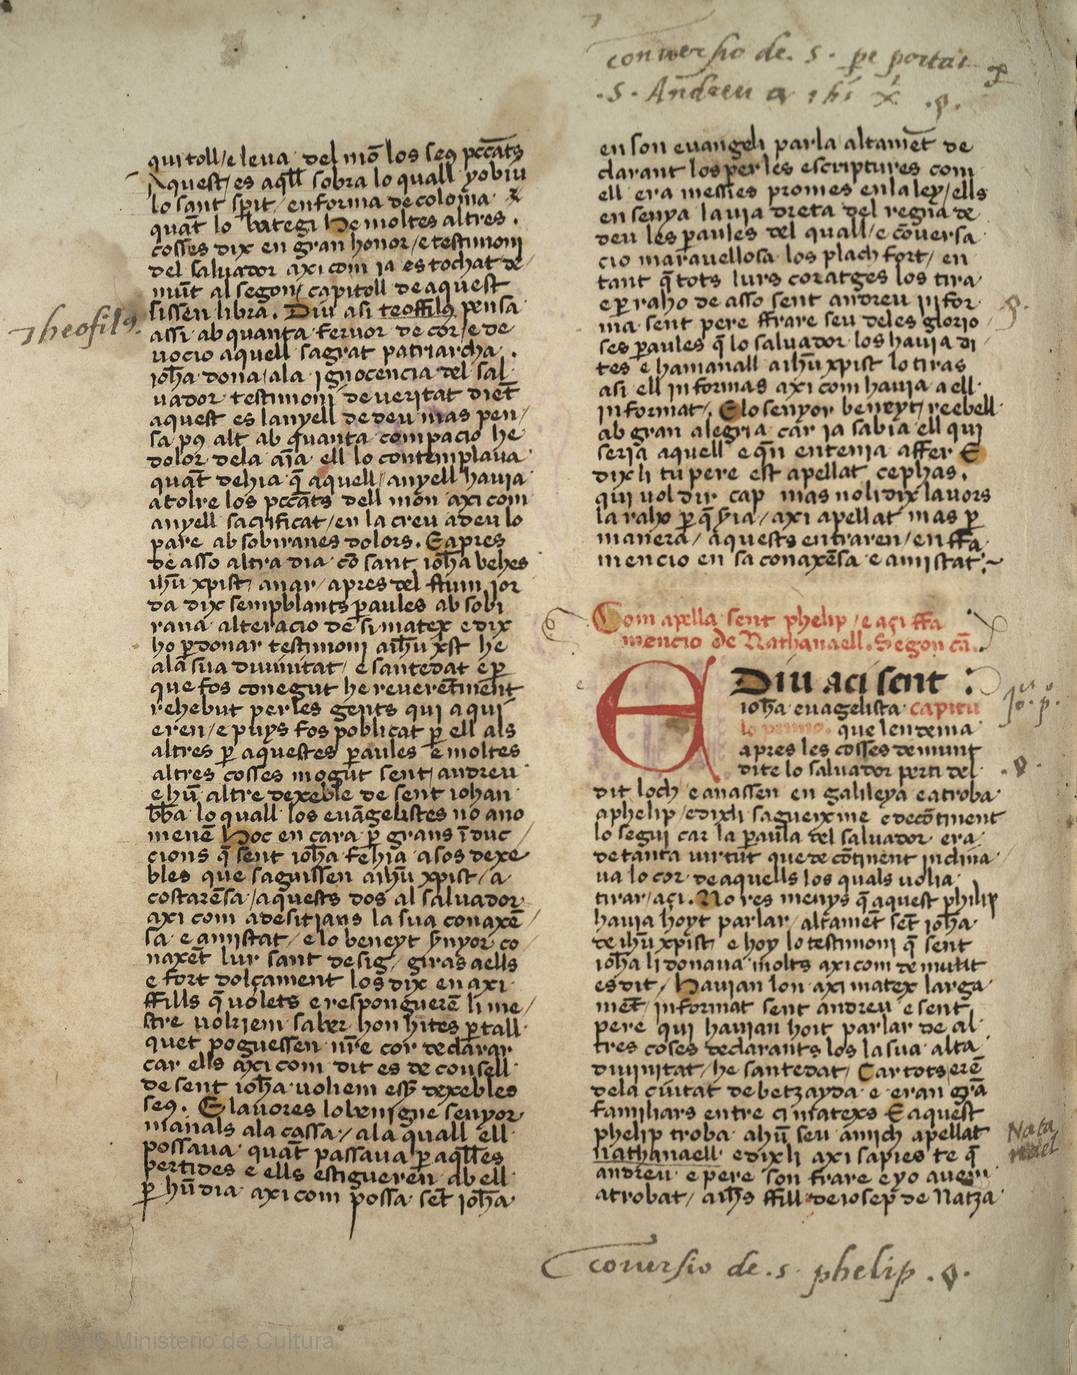 conuersio de. s. pe portat
.S. Andreu a ihs x̄ .
qui toll/e leua del mō los seq pccāts
Aquest/es aq̄ll sobra lo quall yo biu
lo sant sp̄it/ en forma de coloma
quāt lo bategi He moltes altres.
cosses dix en gran honor/e testimoni
del saluador axi com ia es tochat de/
mūt al segon/ capitoll de aquest
sissen libra. Diu asi teoffilq pensa
Theofilq.
assi ab quanta feruor de cor/e de
uocio aquell sagrat patriarcha.
ioh̄a dona/a la ignocencia del sal
uador testimoni de ueritat diēt
aquest es lanyell de deu mas pen/
sa pq alt ab quanta compacio he
dolor de la aīa ell lo contemplaua
quāt dehia q̄ aquell/anyell hauia
a tolre los pccāts dell mon axi com
anyell sacrificat/en la creu a deu lo
pare ab sobiranes dolors. E apres
de asso altra dia cō sant ioh̄a behes
ihū xpist/ anar/ apres del flum jor
da dix semplants paules ab sobi
rana alteracio de si matex e dix
ho p̄donar testimoni a ihū xst he
a la sua diuinitat/ e santedat e p̄
que fos conegut he reuerētment
rehebut per les gents qui aqui
eren/e puys fos poblicat p̄ ell als
altres p̄ aquestes paules e moltes
altres cosses mogūt sent andreu
e hū altre dexeble de sent iohan
bb̄a lo quall los euāgelistes no ano
menē Hoc en cara p̄ grans īduc/
cions q̄ sent ioh̄a fehia a sos dexe/
bles que saguissen a ihū xpist/a
costarēsa/aquests dos al saluador
axi com a desitians la sua conaxē/
sa e amistat/e lo beneyt s̄nyor co/
naxēt lur sant desig/ giras a ells
e fort dolçament los dix en axi
ffills q̄ uolets e responguerē li me/
stre uolriem saber hon hites p̄ tall
quet poguessen n̄re cor declarar
car ells axi com dit es de consell
de sent ioh̄a uoliem ess̄ dexebles
seq. E lauores lo benigne senyor
manals a la cassa/ a la quall ell
possaua quāt passaua p̄ aq̄lles
pertides e ells estigueren ab ell
p̄ hū dia axi com possa sēt ioh̄a
en son euangeli parla altamēt de
clarant los per les escriptures com
ell era messies promes en la ley/ells
en senya la uia dreta del regna de
deu les paules del quall/e cōuersa
cio marauellosa los plach fort/ en
tant q̄ tots lurs coratges los tira
e p̄ raho de asso sent andreu infor
ma sent pere ffrare seu de les glorio
ses paules q̄ lo saluador los hauia di
tes e hamanall a ihū xpist lo tiras
asi ell informas axi com hauia a ell
informat/. E lo senyor beneyt/reebell
ab gran alegria car ia sabia ell qui
seria aquell e q̄n entenia affer E
dix li tu pere est apellat cephas.
qui uol dir cap mas noli dix lauors
la raho p̄ q̄ s̄ria/axi apellat mas p̄
manera/ aquests entraren/en ffa
mencio en sa conaxēsa e amistat.
Com apella sent phelip/e açi ffa
mencio de Nathanaell. Segon cā.
E Diu aci sent
ioh̄a euagelista capitu
lo primo. que lendema
apres les cosses demunt
dite lo saluador perti del
dit loch e anassen en galileya e atroba
a phelip/e dixli sagueix me e decōtinent
lo segui car la paula del saluador era
de tanta uirtūt que de cōtinent inclina
ua lo cor de aquells los quals uolia
tirar/açi. No res menys q̄ aquest philip
hauia hoyt parlar/altamēt sēt ioh̄a
de ihū xpist/ e hoy lo testimoni q̄ sent
ioh̄a li donaua molts axi com demūt
es dit/. Hauian lon axi matex larga
mēt/ informat sent andreu e sent
pere qui hauian hoit parlar de al
tres coses declarants los la sua alta
diuinitat/he santedat/ Car tots erē
de la ciutat de betzayda e eran grā
familiars entre ci matexs E aquest
phelip troba a hū seu amich apellat
nathanaell e dixli axi sapies te q̄
Nata
nael
andreu e pere son frare e yo auem
atrobat/ a ihs ffill de iosep de Natza
Conuersio de. s. phelip.
(c) 2006 Ministerio de Cultura